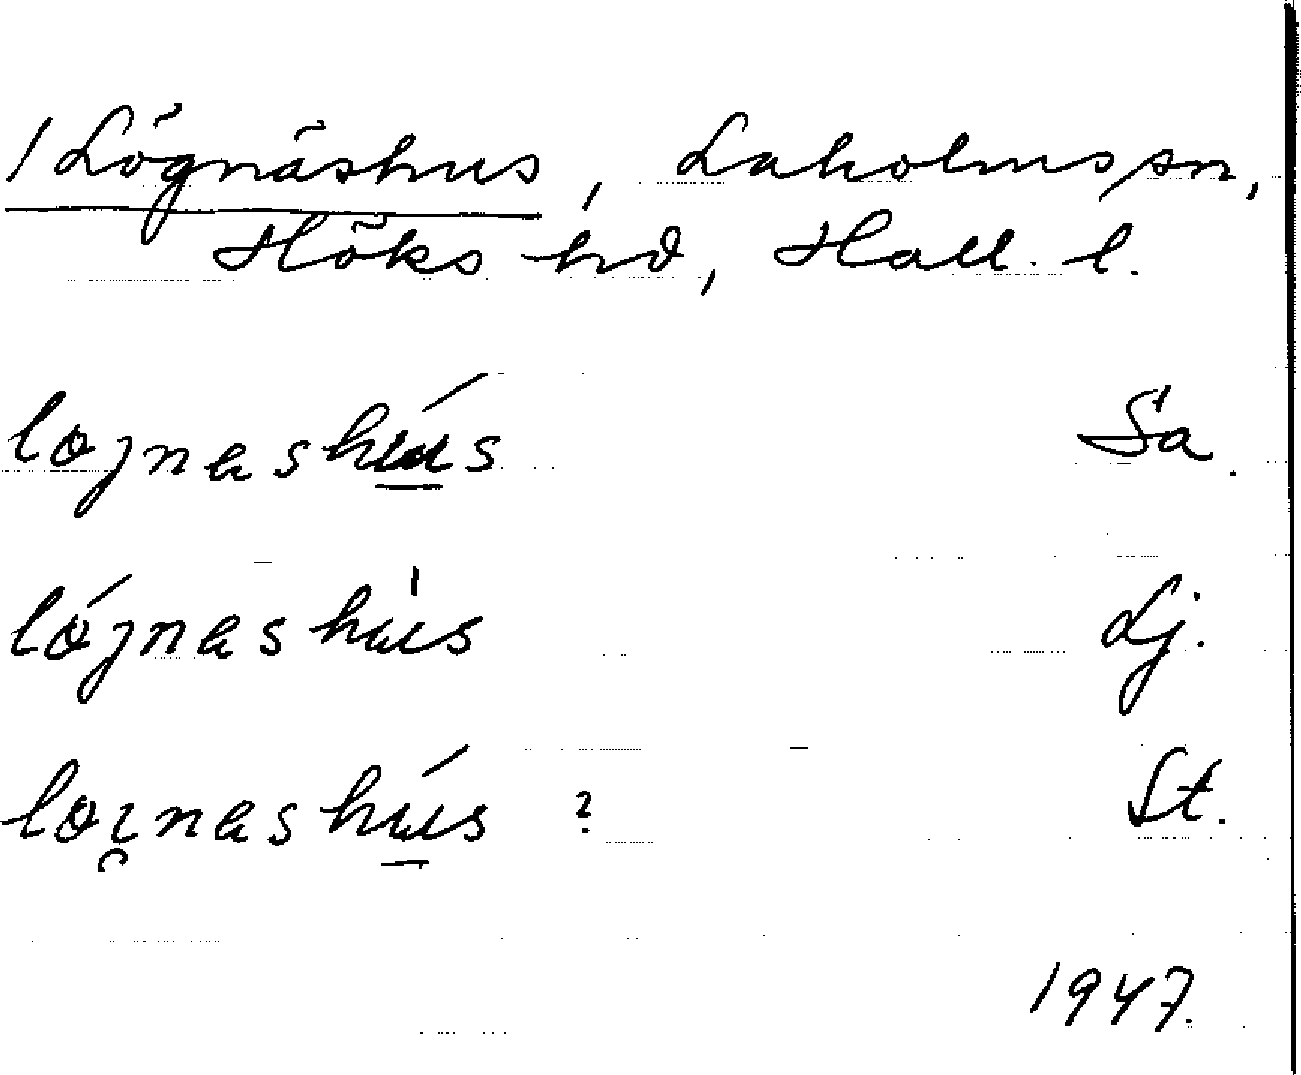 / Lögnäshus, Laholms sn,
Höks hd, Hall. l.
lojnashú̲s Sa.
lójnashùs Lj.
loi̯nashú̲s ? St.
1947.